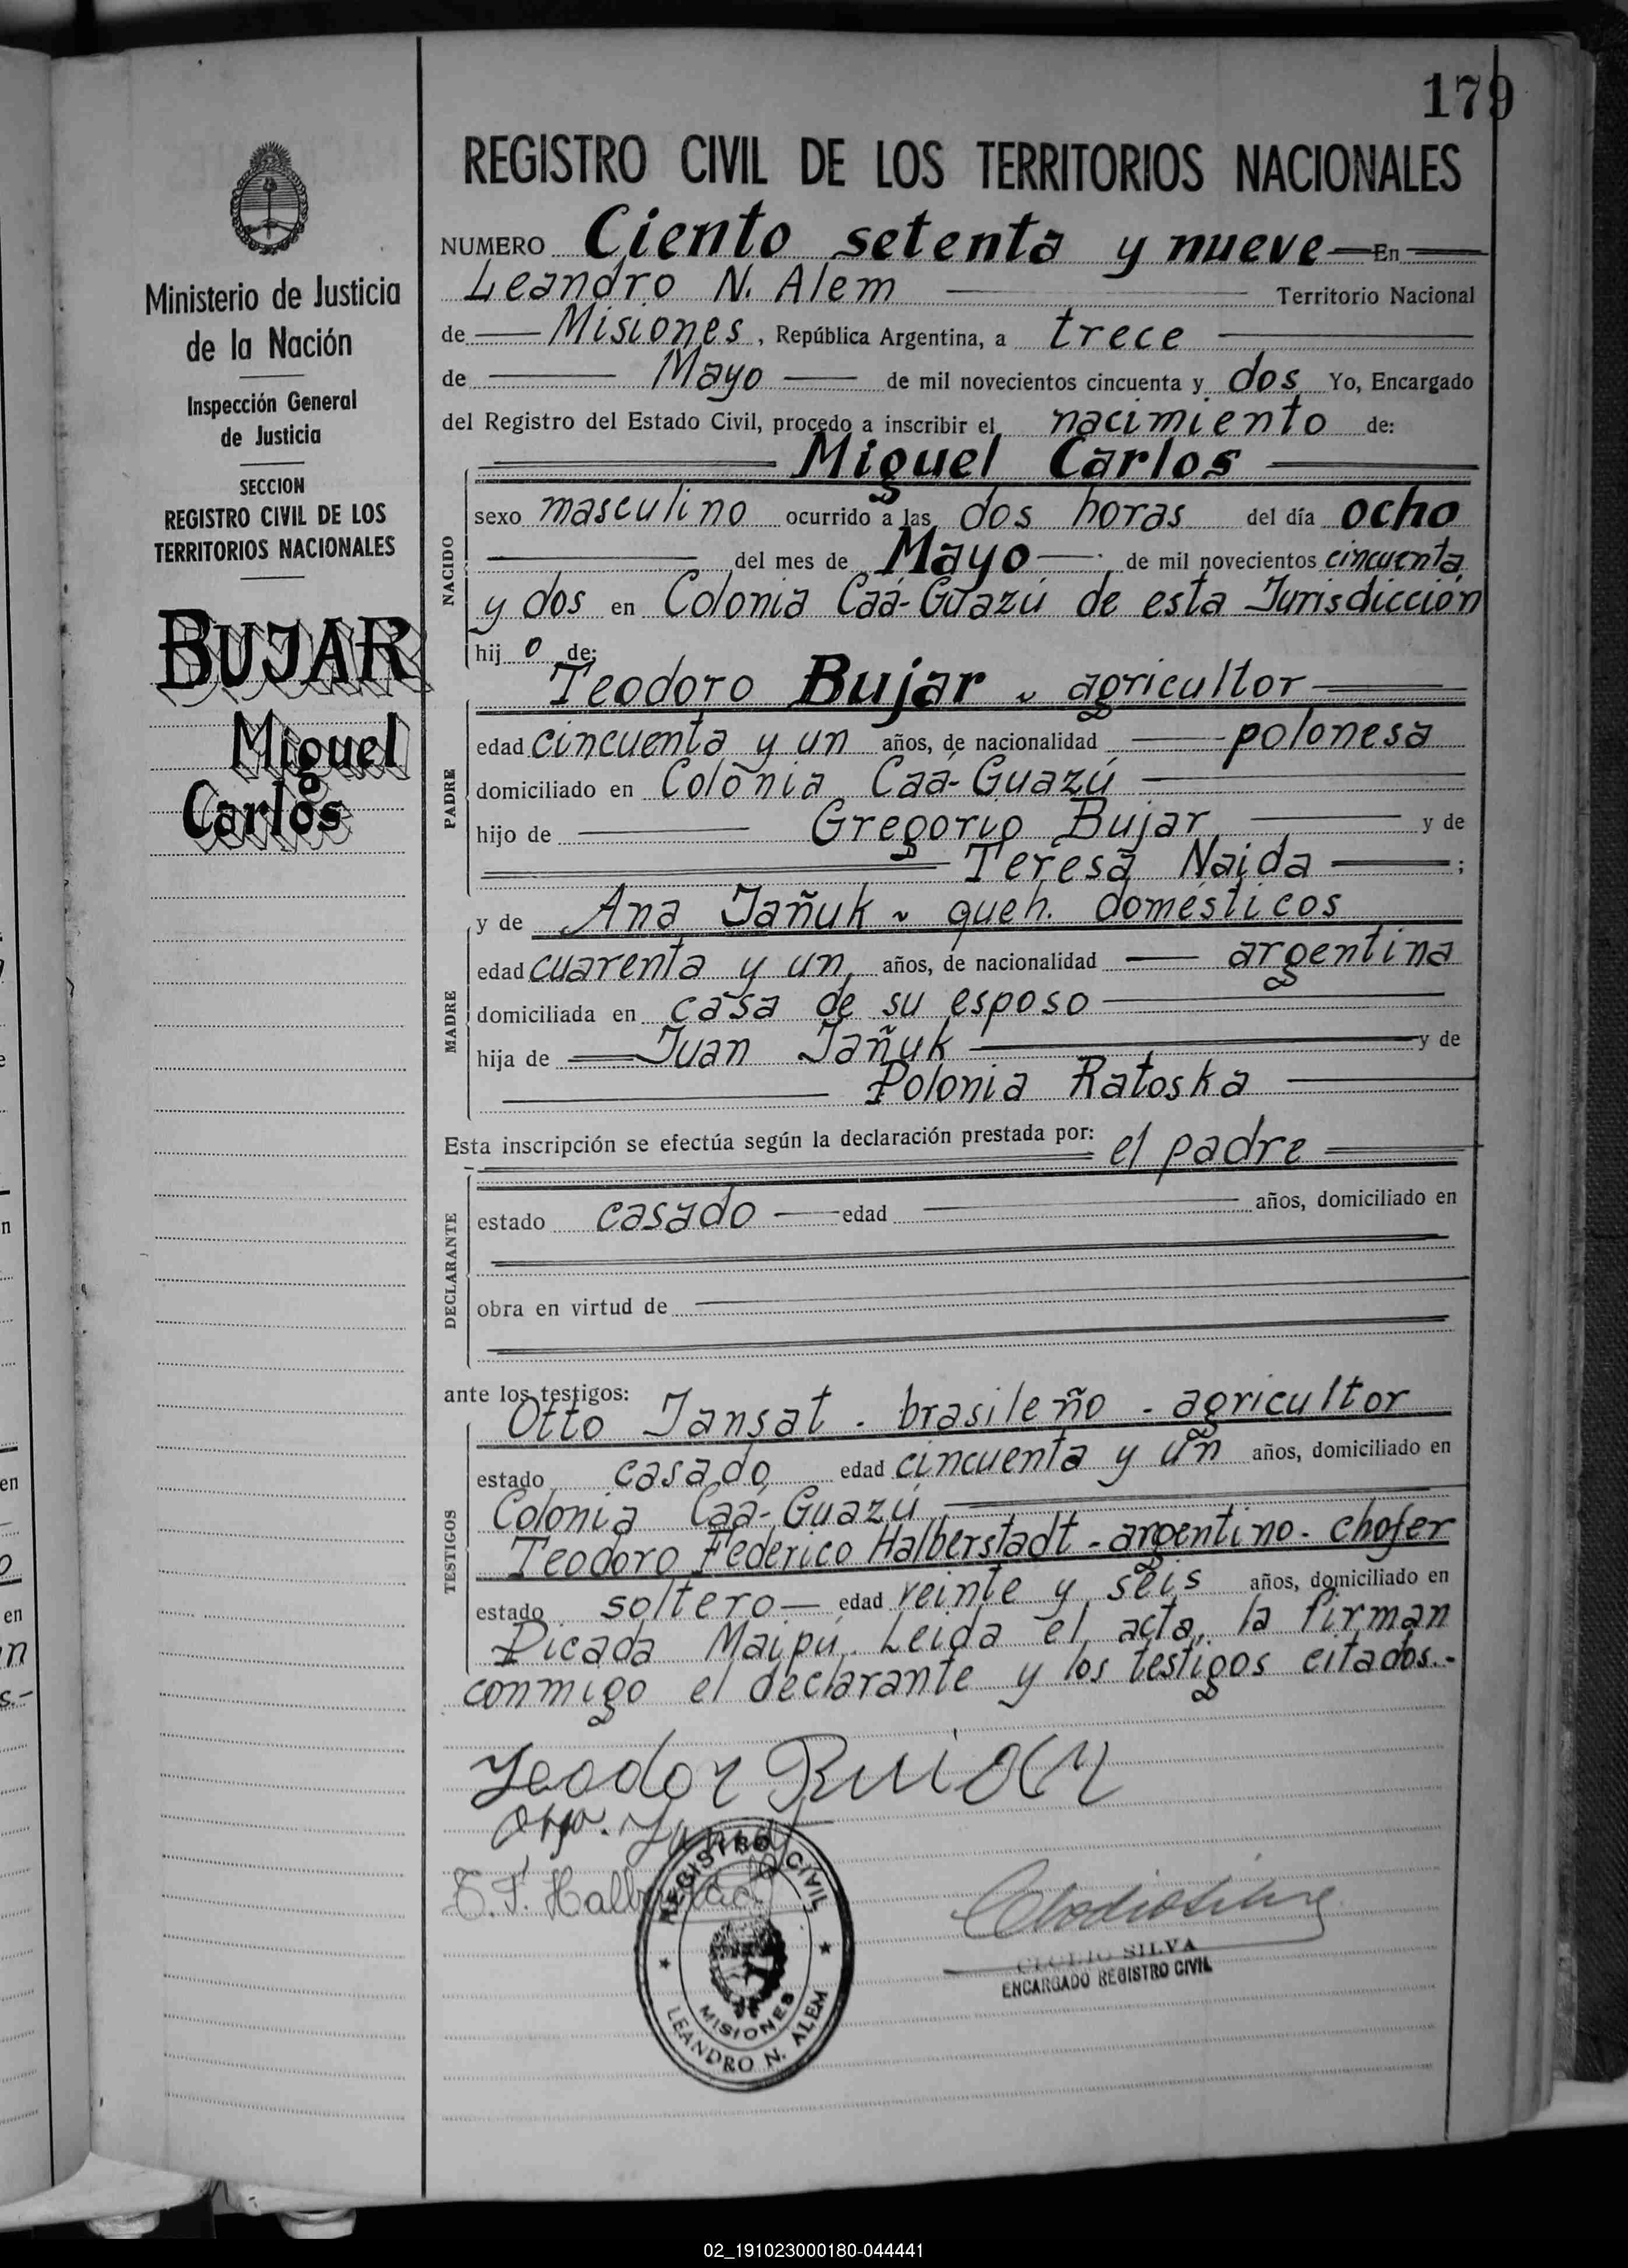 179
REGISTRO CIVIL DE LOS TERRITORIOS NACIONALES
Ministerio de Justicia
de la Nación
Inspección General
de Justicia
SECCION
REGISTRO CIVIL DE LOS
TERRITORIOS NACIONALES
BUJAR
Miguel
Carlos
NUMERO Ciento setenta y nueve En
Leandro N. Alem Territorio Nacional
de Misiones, República Argentina, a trece
de Mayo de mil novecientos cincuenta y dos Yo, Encargado
del Registro del Estado Civil, procedo a inscribir el nacimiento de:
Miguel Carlos
NACIDO
sexo masculino ocurrido a las dos horas del día ocho
del mes de Mayo de mil novecientos cincuenta
y dos en Colonia Caá-Guazú de esta Jurisdicción
hijo de:
PADRE
Teodoro Bujar ~ agricultor
edad cincuenta y un años, de nacionalidad polonesa
domiciliado en Colonia Caá-Guazú
hijo de Gregorio Bujar y de
Teresa Naida ;
MADRE
y de Ana Jañuk ~ queh. domésticos
edad cuarenta y un años, de nacionalidad argentina
domiciliada en casa de su esposo
hija de Juan Jañuk y de
Polonia Ratoska
Esta inscripción se efectúa según la declaración prestada por: el padre
DECLARANTE
estado casado edad años, domiciliado en
obra en virtud de
ante los testigos:
TESTIGOS
Otto Jansat - brasileño - agricultor
estado casado edad cincuenta y un años, domiciliado en
Colonia Caá-Guazú
Teodoro Federico Halberstadt - argentino - chofer
estado soltero edad veinte y seis años, domiciliado en
Picada Maipú. Leida el acta, la firman
conmigo el declarante y los testigos citados.-
Teodor Bujar
T. F. Halberstadt
REGISTRO CIVIL
MISIONES
LEANDRO N. ALEM
SILVA
ENCARGADO REGISTRO CIVIL
02_191023000180-044441